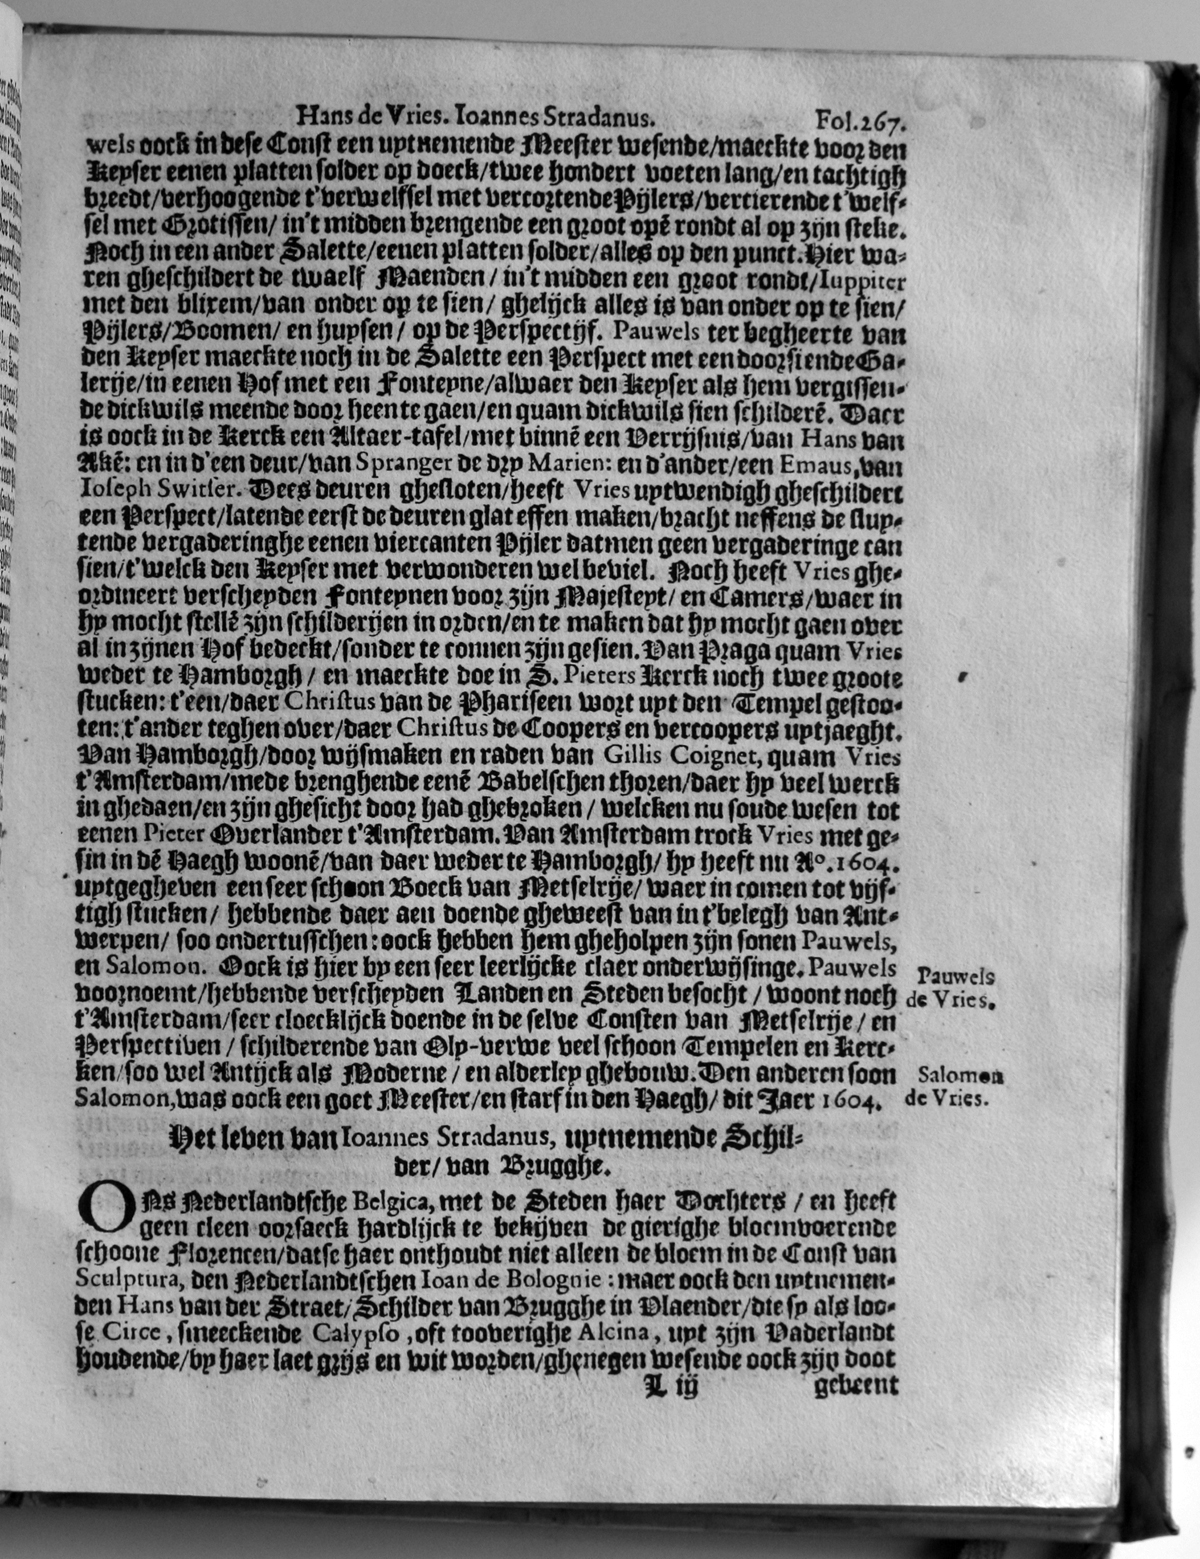 Hans de Vries. Ioannes Stradanus. Fol.267.
wels oock in dese Const een uytnemende Meester wesende/maeckte voor den
Keyser eenen platten solder op doeck/twee hondert voeten lang/en tachtigh
breedt/verhoogende t'verwelffsel met vercortende Pijlers/vercierende t'welf-
sel met Grotissen/ in't midden brengende een groot opē rondt al op zijn steke.
Noch in een ander Salette/eenen platten solder/alles op den punct. Hier wa-
ren gheschildert de twaelf Maenden/ in't midden een groot rondt/Iuppiter
met den blixem/van onder op te sien/ ghelijck alles is van onder op te sien/
Pijlers/Boomen/ en huysen/ op de Perspectijf. Pauwels ter begheerte van
den Keyser maeckte noch in de Salette een Perspect met een doorsiende Ga-
lerije/in eenen Hof met een Fonteyne/alwaer den Keyser als hem vergissen-
de dickwils meende door heen te gaen/en quam dickwils sien schilderē. Daer
is oock in de Kerck een Altaer-tafel/met binnē een Verrijsnis/van Hans van
Akē: en in d'een deur/van Spranger de dry Marien: en d'ander/een Emaus, van
Ioseph Switser. Dees deuren ghesloten/heeft Vries uytwendigh gheschildert
een Perspect/latende eerst de deuren glat effen maken/bracht neffens de sluy-
tende vergaderinghe eenen viercanten Pijler datmen geen vergaderinge can
sien/t'welck den Keyser met verwonderen wel beviel. Noch heeft Vries ghe-
ordineert verscheyden Fonteynen voor zijn Majesteyt/ en Camers/waer in
hy mocht stellē zijn schilderijen in orden/en te maken dat hy mocht gaen over
al in zijnen Hof bedeckt/sonder te connen zijn gesien. Van Praga quam Vries
weder te Hamborgh/ en maeckte doe in S. Pieters Kerck noch twee groote
stucken: t'een/daer Christus van de Phariseen wort uyt den Tempel gestoo-
ten: t'ander teghen over/daer Christus de Coopers en vercoopers uytjaeght.
Van Hamborgh/door wijsmaken en raden van Gillis Coignet, quam Vries
t'Amsterdam/mede brenghende eenē Babelschen thoren/daer hy veel werck
in ghedaen/en zijn ghesicht door had ghebroken/ welcken nu soude wesen tot
eenen Pieter Overlander t'Amsterdam. Van Amsterdam trock Vries met ge-
sin in dē Haegh woonē/van daer weder te Hamborgh/ hy heeft nu Aº. 1604.
uytgegheven een seer schoon Boeck van Metselrije/ waer in comen tot vijf-
tigh stucken/ hebbende daer aen doende gheweest van in t'belegh van Ant-
werpen/ soo ondertusschen: oock hebben hem gheholpen zijn sonen Pauwels,
en Salomon. Oock is hier by een seer leerlijcke claer onderwijsinge. Pauwels
voornoemt/hebbende verscheyden Landen en Steden besocht/ woont noch
t'Amsterdam/seer cloecklijck doende in de selve Consten van Metselrije/ en
Perspectiven/ schilderende van Oly-verwe veel schoon Tempelen en Kerc-
ken/soo wel Antijck als Moderne/ en alderley ghebouw. Den anderen soon
Salomon, was oock een goet Meester/en starf in den Haegh/ dit Jaer 1604.
Pauwels
de Vries.
Salomon
de Vries.
Het leven van Ioannes Stradanus, uytnemende Schil-
der/ van Brugghe.
ONs Nederlandtsche Belgica, met de Steden haer Dochters/ en heeft
geen cleen oorsaeck hardlijck te bekijven de gierighe bloemvoerende
schoone Florencen/datse haer onthoudt niet alleen de bloem in de Const van
Sculptura, den Nederlandtschen Ioan de Bolognie: maer oock den uytnemen-
den Hans van der Straet/Schilder van Brugghe in Vlaender/die sy als loo-
se Circe, smeeckende Calypso, oft tooverighe Alcina, uyt zijn Vaderlandt
houdende/by haer laet grijs en wit worden/ghenegen wesende oock zijn doot
L iij gebeent